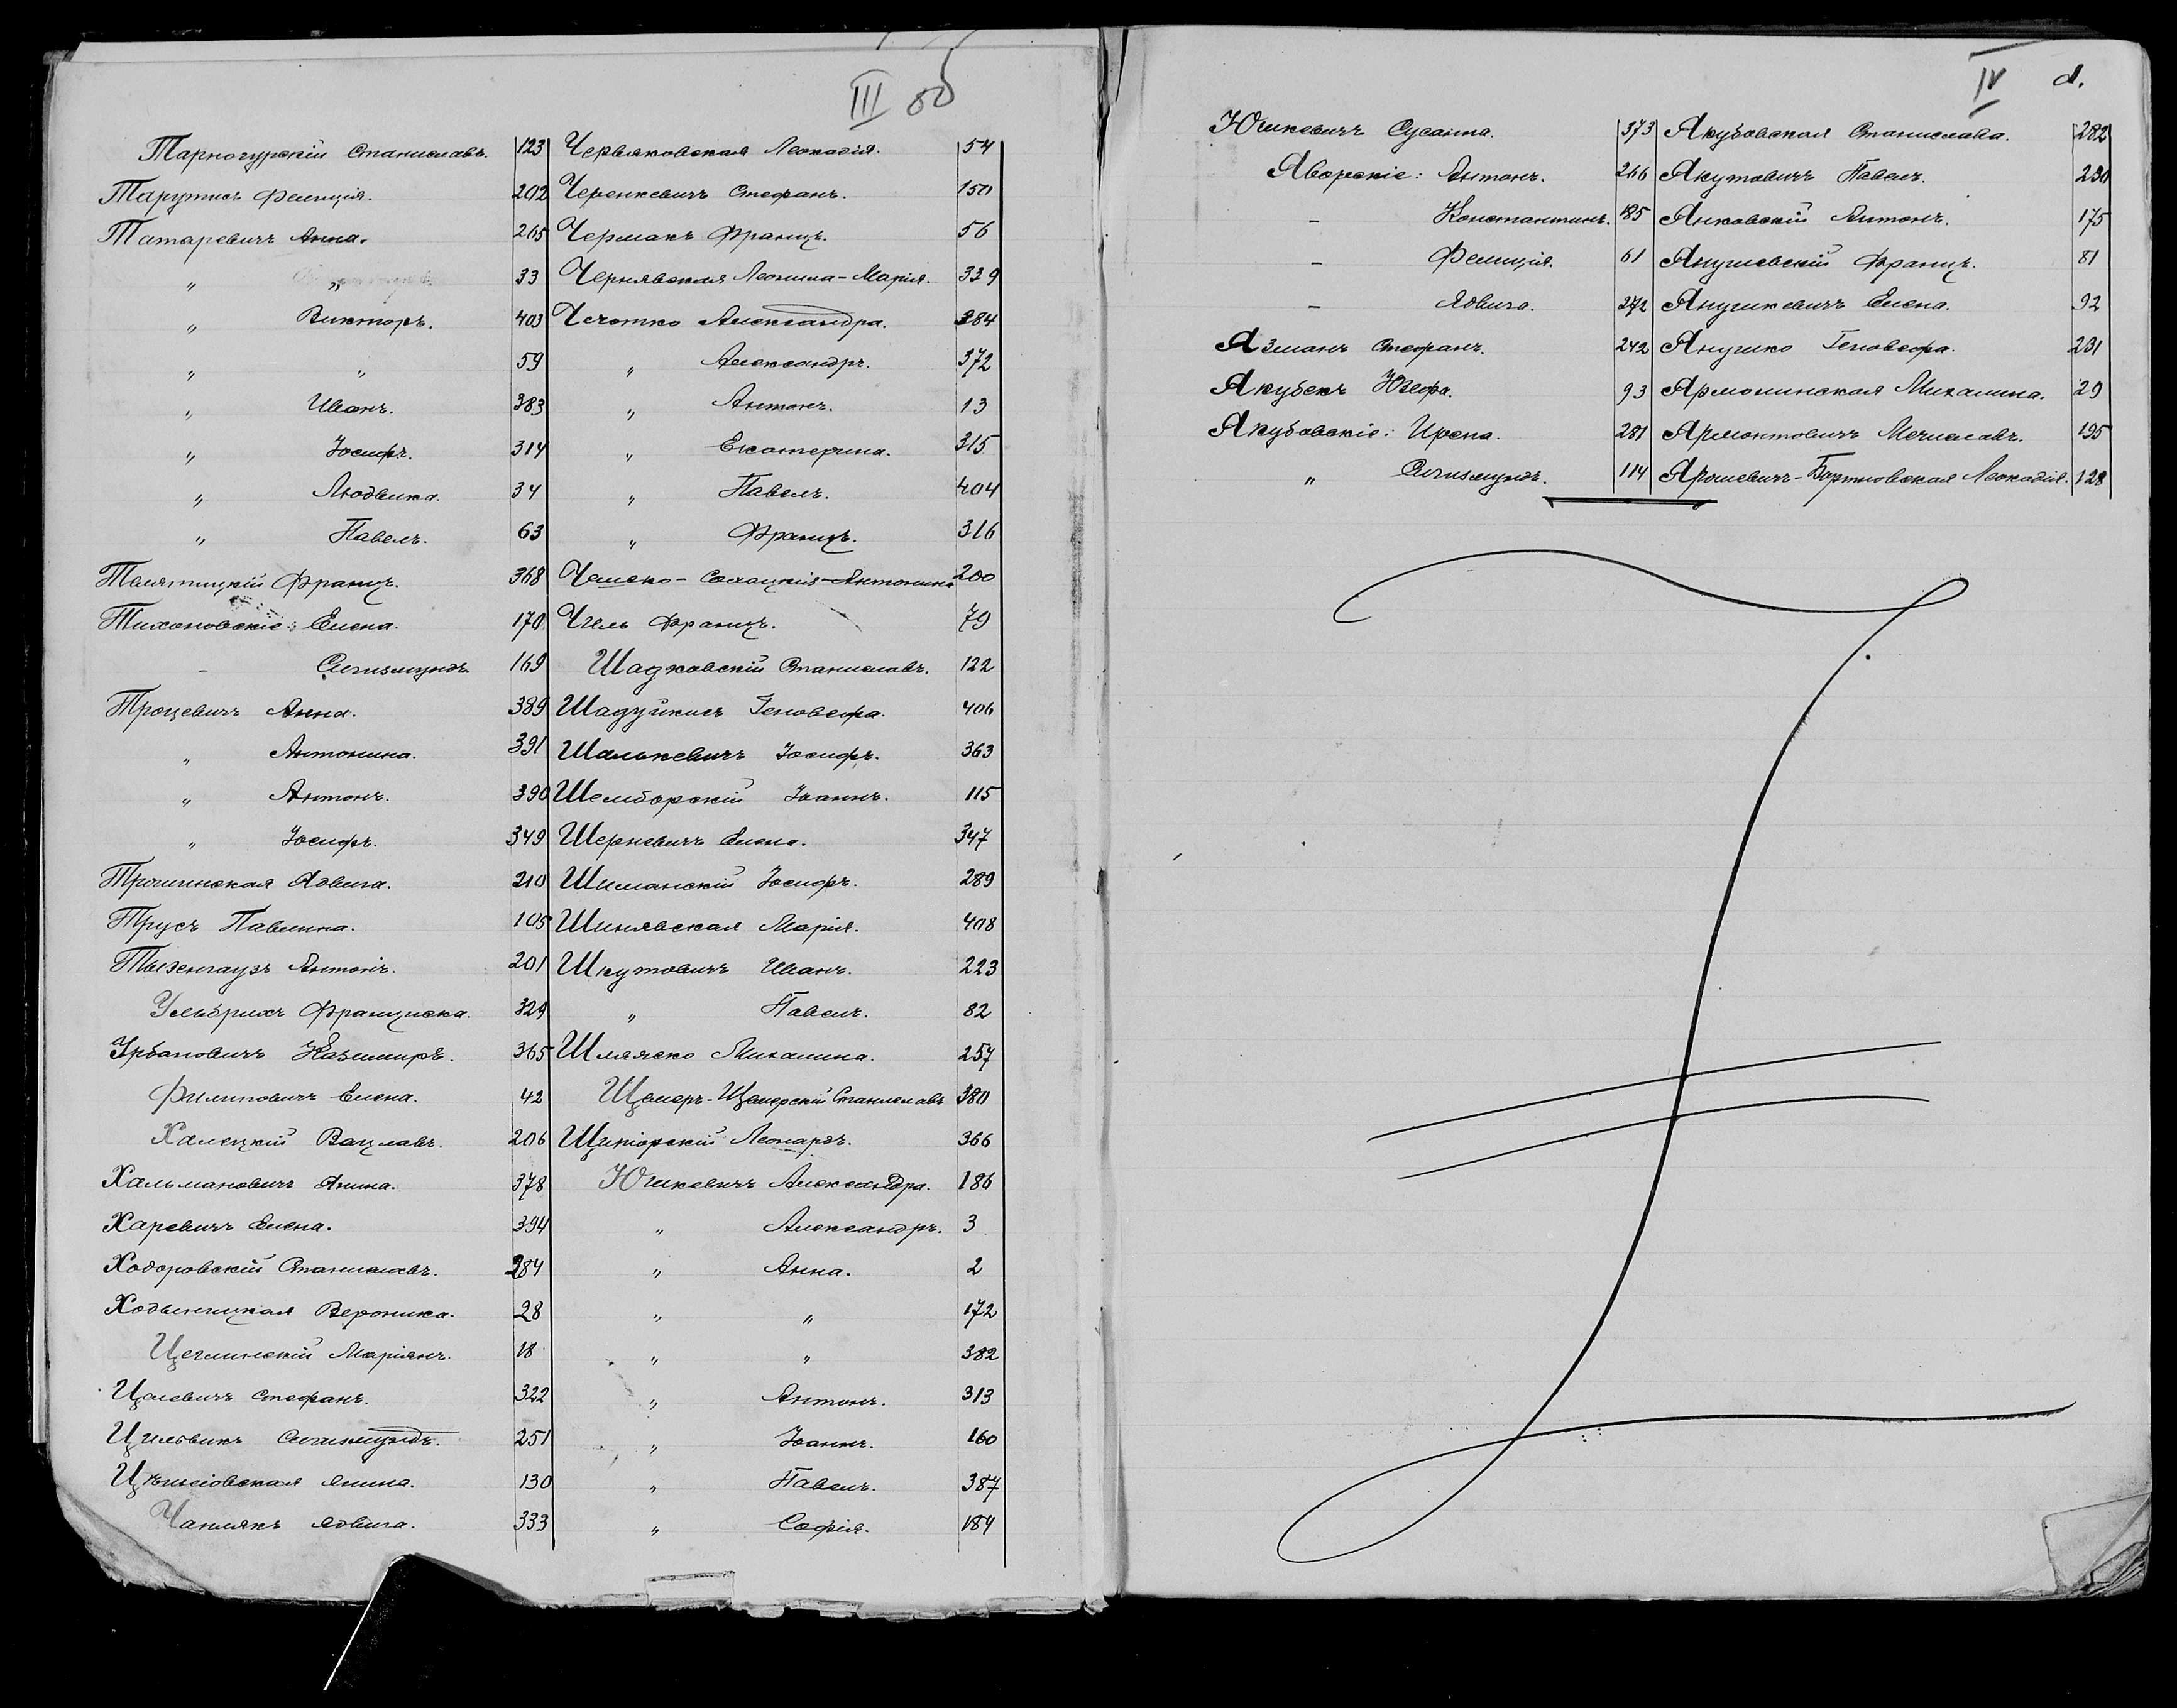 III 85
Тарногурскій Станиславъ. 123
Тарутисъ Фелиція. 202
Татаревичъ Анна. 265
" " 33
" Викторъ. 403
" " 59
" Иванъ. 383
" Іосифъ. 314
" Людвика. 34
" Павелъ. 63
Телятицкій Францъ. 368
Тихоновскіе: Елена. 170
- Сигизмундъ. 169
Троцевичъ Анна. 389
" Антонина. 391
" Антонъ. 390
" Іосифъ. 349
Трошинская Ядвига. 210
Трусъ Павлина. 105
Тызенгаузъ Антоній. 201
Ульбрихъ Франциска. 329
Урбановичъ Казимиръ. 365
Филиповичъ Елена. 42
Халецкій Вацлавъ. 206
Хальмановичъ Янина. 378
Харевичъ Елена. 394
Ходоровскій Станиславъ. 284
Ходыницкая Вероника. 28
Цеглинскій Маріянъ. 18
Цалевичъ Стефанъ. 322
Цильвикъ Сигизмундъ. 251
130
Чаплякъ Ядвига. 333
Червяковская Леокадія. 54
Черенкевичъ Стефанъ. 150
Чермакъ Францъ. 56
Чернявская Леонина-Марія. 339
Чечотко Александра. 384
" Александръ. 372
" Антонъ. 13
" Екатерина. 315
" Павелъ. 404
" Францъ. 316
Антонина 200
Чиль Францъ. 79
Шадковскій Станиславъ. 122
Шадуйкисъ Геновефа. 406
Шалькевичъ Іосифъ. 363
Шемборскій Іоаннъ. 115
Шерневичъ Елена. 347
Шиманскій Іосифъ. 289
Шинявская Марія. 408
Шкутовичъ Иванъ. 223
" Павелъ. 82
Шлячко Михалина. 257
Щемеръ-Щемерскій Станиславъ 380
Щипіорскій Леонардъ. 366
Юшкевичъ Александра. 186
" Александръ. 3
" Анна. 2
" " 172
" " 382
" Антонъ. 313
" Іоаннъ. 160
" Павелъ. 387
" Софія. 184
IV d.
Юшкевичъ Сусанна. 373
Яворскіе: Антонъ. 266
- Константинъ. 185
- Фелиція. 61
- Ядвига. 272
Язманъ Стефанъ. 242
Якубекъ Юзефа. 93
Якубовскіе: Ирена. 281
" Сигизмундъ. 114
Якубовская Станислава. 282
Якутовичъ Павелъ. 230
Янковскій Антонъ. 175
Янушевскій Францъ. 81
Янушкевичъ Елена. 92
Янушко Геновефа. 231
Ярмолинская Михалина. 29
Ярмонтовичъ Мечиславъ. 195
Ярошевичъ-Бортновская Леокадія. 128